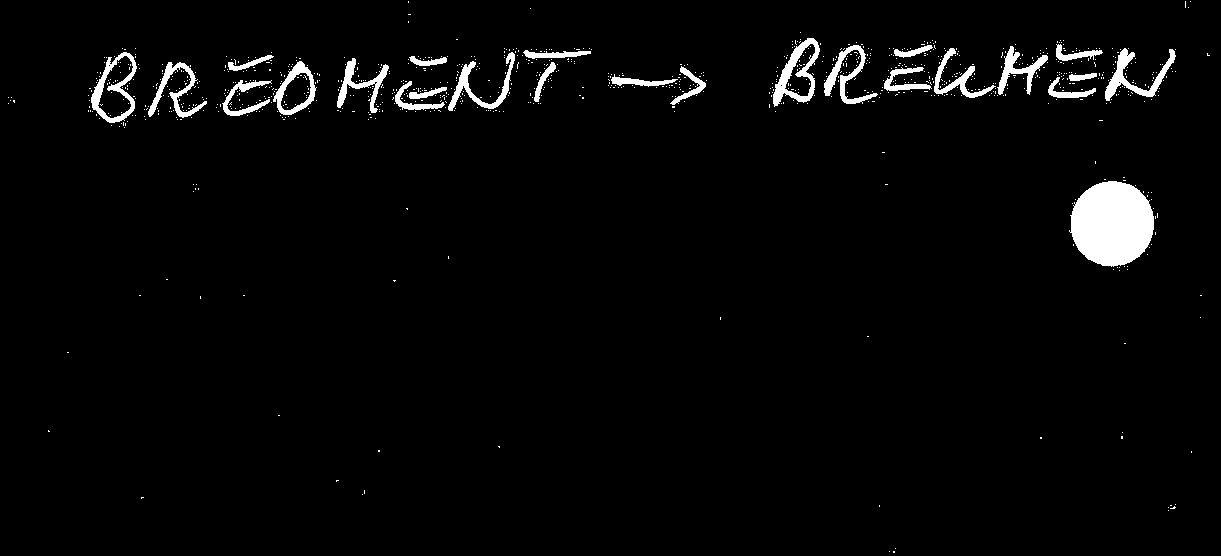 BREOMENT → BREUMEN